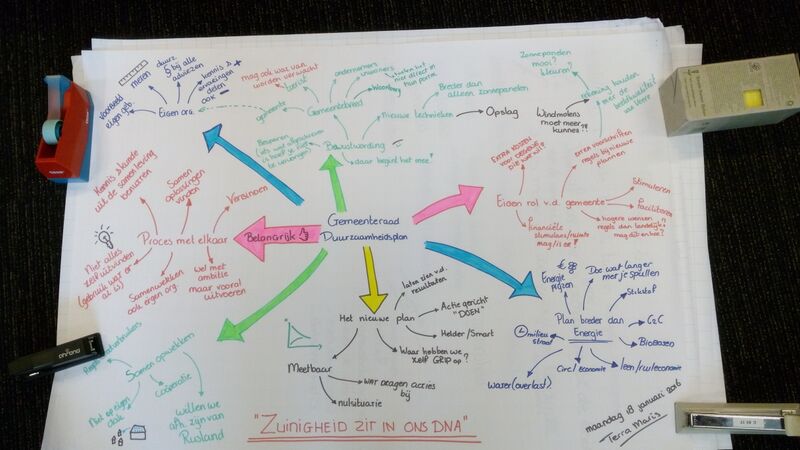 Gemeenteraad
Duurzaamheidsplan
Belangrijk
Proces met elkaar
Kennis & kunde
uit de samenleving
benutten
Samen
oplossingen
vinden
Verbinden
Niet alles
zelf uitvinden
(gebruik wat er
al is)
Samenwerken
ook eigen org.
Wel met
ambitie
maar vooral
uitvoeren
Eigen org.
voorbeeld
eigen geb.
meten
duurz
§ bij alle
adviezen
kennis &
ervaringen
delen
ook
Gemeentebreed
gemeente
mag ook wat van
worden verwacht
toerist
ondernemers
inwoners
Bewustwording
Besparen
daar begint het mee!
nieuwe technieken
Breder dan
alleen zonnepanelen
Opslag
Windmolens
moet meer
kunnen?!
Zonnepanelen
mooi?
kleuren?
rekening houden
met de
beeldkwaliteit
van Veere
Eigen rol v.d. gemeente
EXTRA KOSTEN
extra voorschriften
regels bij nieuwe
plannen
Stimuleren
Faciliteren
hogere wensen
regels dan landelijk
mag dit en hoe?
financiële
stimulans/ruimte
mag/is er?
Het nieuwe plan
laten zien v.d.
resultaten
Actie gericht
"DOEN"
Helder/Smart
Waar hebben we
zelf GRIP op?
Meetbaar
wat dragen acties
bij
nulsituatie
Plan breder dan
Energie
Energie
pijzen
Doe wat langer
met je spullen
Stikstof
C2C
BioBased
leen/ruileconomie
Circ. economie
water(overlast)
milieu
straat
Samen opwekken
coöperatie
Niet op eigen
dak
willen we
afh. zijn van
Rusland
"ZUINIGHEID ZIT IN ONS DNA"
maandag 18 januari 2016
Terra Maris